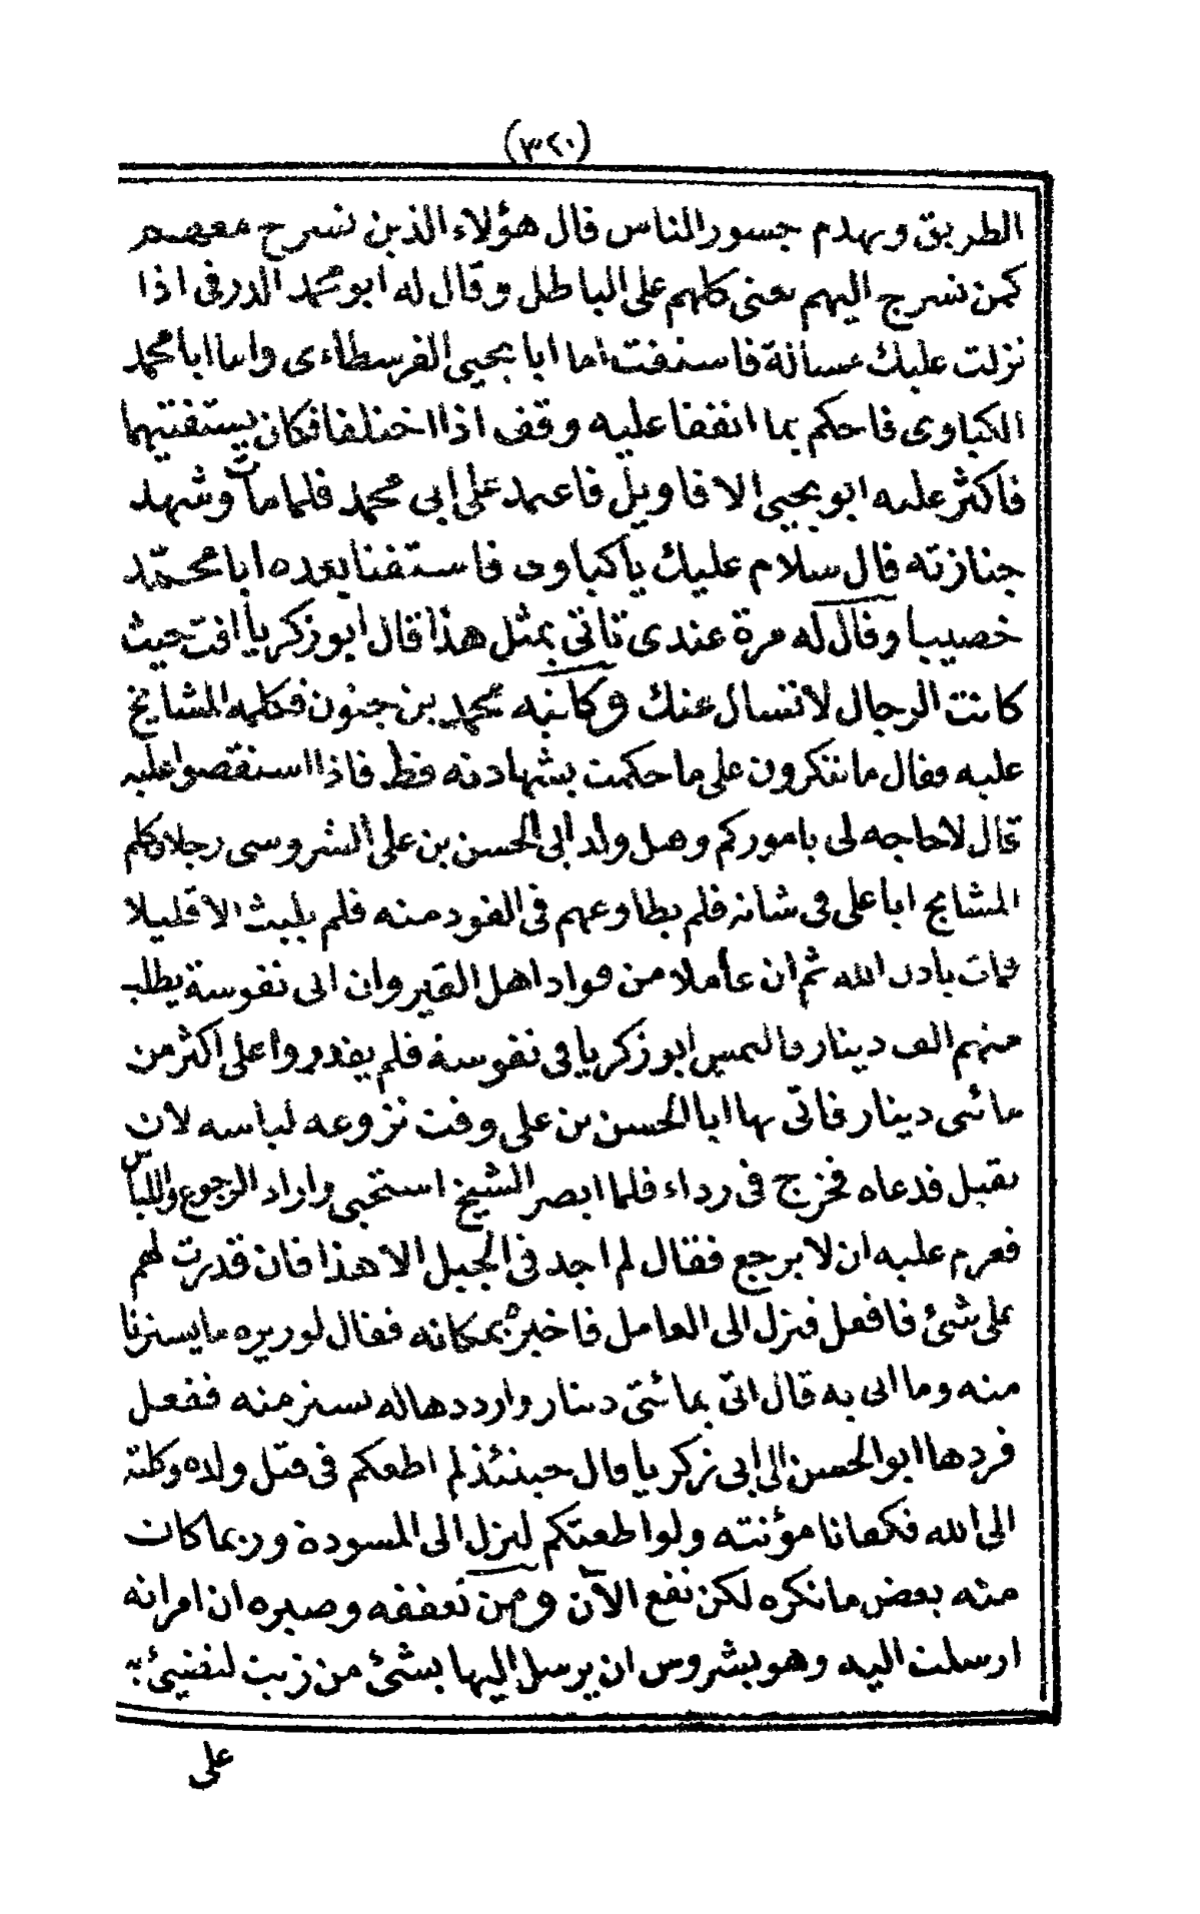 (٣٢٠)
الطريق ويهدم جسور الناس قال هؤلاء الذين نسرح معهم
كمن نسرج اليهم يعنى كلهم على الباطل وقال له ابو محمد الدرفى اذا
نزلت عليك مسالة فاستفت اما ابا يحيى الفرسطاءى واما ابا محمد
الكباوى فاحكم بما اتفقا عليه وقف اذا اختلفا فكان يستفتيهما
فاكثر عليه ابو يحيى الاقاويل فاعتمد على ابى محمد فلما مات وشهد
جنازته قال سلام عليك يا كباوى فاستفتا بعده ابا محمد
خصيبا وقال له مرة عندى تاتى بمثل هذا قال ابو زكريا افت حيث
كانت الرجال لا تسال عنك وكاتبه محمد بن جنون فكلمه المشايخ
عليه فقال ما تنكرون على ما حكمت بشهادته قط فاذا استقصوا عليه
قال لا حاجه لى باموركم وهل ولد ابى الحسن بن على الشروسى رجلا فكلم
المشايخ ابا على فى شانه فلم يطاوعهم فى القود منه فلم يلبث الا قليلا
فمات باذن الله ثم ان عاملا من قواد اهل القيروان اتى نفوسة يطلب
منهم الف دينار فالتمس ابو زكريا فى نفوسة فلم يقدروا على اكثر من
مائتى دينار فاتى بها ابا الحسن بن على وقت نزوعه لباسه لان
يقيل فدعاه فخرج فى رداء فلما ابصر الشيخ استحيى واراد الرجوع واللباس
فعزم عليه ان لا يرجع فقال لم اجد فى الجبل الا هذا فان قدرت لهم
على شئ فافعل فنزل الى العامل فاخبر بمكانه فقال لوزيره ما يسترنا
منه وما اتى به قال اتى بمائتى دينار وارددها له نستر منه ففعل
فردها ابو الحسن الى ابى زكريا قال حينئذ لم اطعكم فى قتل ولده وكلته
الى الله فكفانا مؤنته ولو اطعتكم لنزل الى المسودة وربما كان
منه بعض ما نكره لكن نفع الآن ومن تعففه وصبره ان امراته
ارسلت اليه وهو بشروس ان يرسل اليها بشئ من زيت لتضيئ به
على